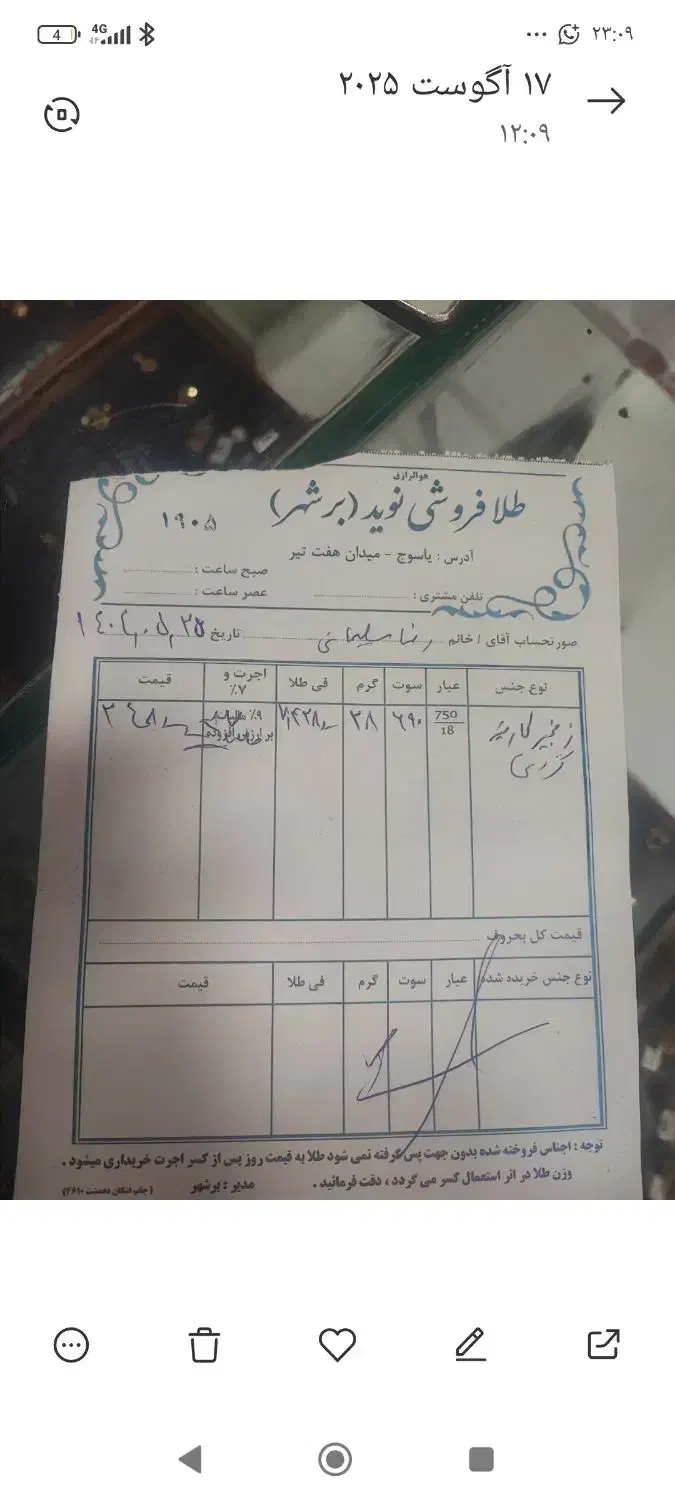 ۲۳:۰۹
4G 4
۱۷ آگوست ۲۰۲۵
۱۲:۰۹
هوالرازق
طلا فروشی نوید (برشهر)
۱۹۰۵
آدرس : یاسوج - میدان هفت تیر
صبح ساعت :
تلفن مشتری :
عصر ساعت :
صورتحساب آقای / خانم رضا سلیمانی تاریخ
نوع جنس عیار سوت گرم فی طلا اجرت و ۷٪ قیمت
زنجیر کارتیه 750 ۶۹۰ ۳۸ ۷,۴۲۸ ۹٪ مالیات
گردی 18 بر ارزش افزوده
قیمت کل بحروف
نوع جنس خریده شده عیار سوت گرم فی طلا قیمت
توجه : اجناس فروخته شده بدون جهت پس گرفته نمی شود طلا به قیمت روز پس از کسر اجرت خریداری میشود .
وزن طلا در اثر استعمال کسر می گردد ، دقت فرمائید .
مدیر : برشهر